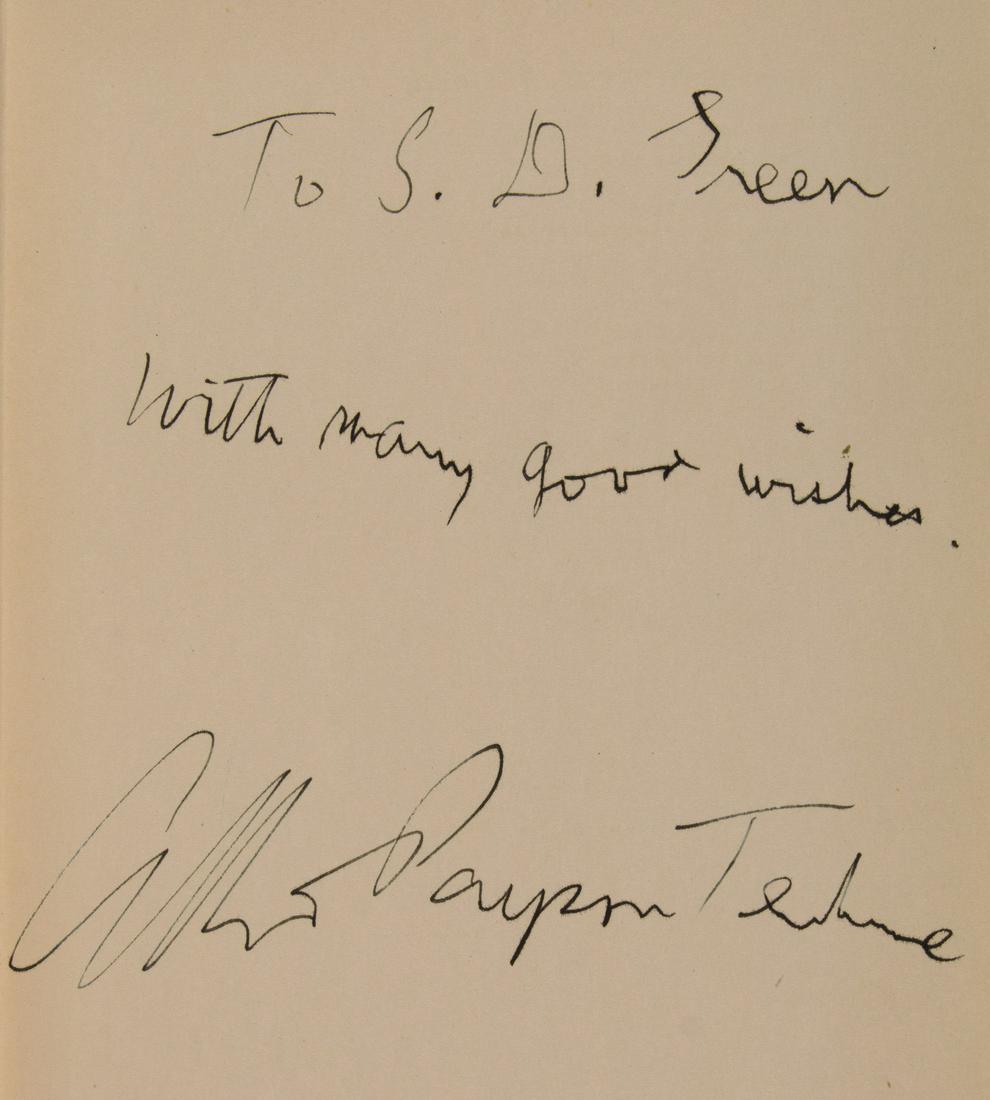 To S. D. Green
With many good wishes.
Albert Payson Terhune